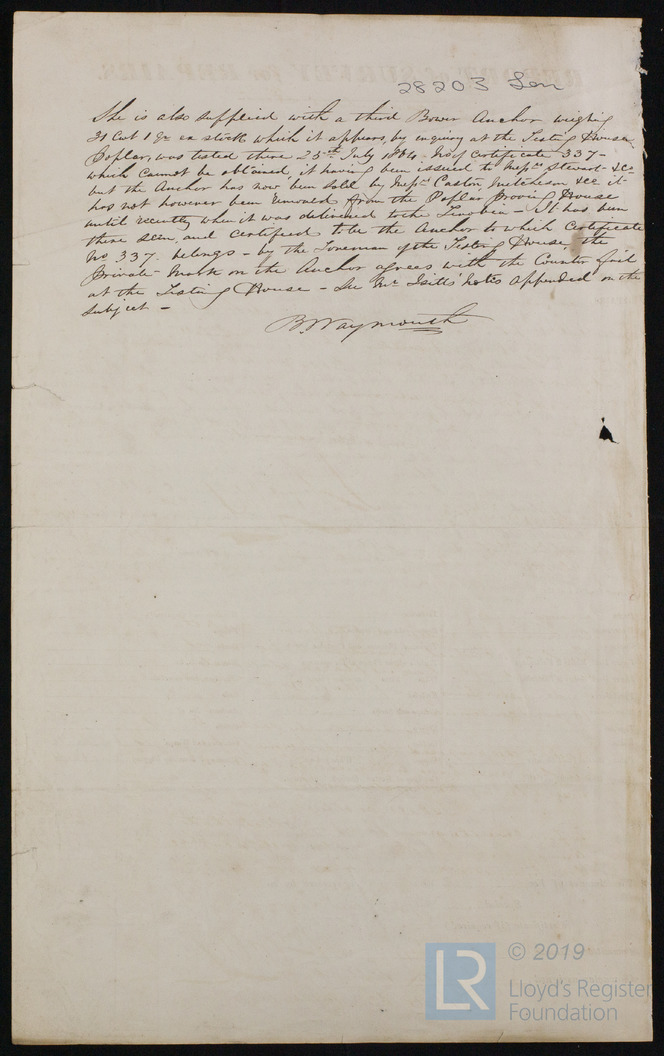 28203 Lon
She is also supplied with a third Bower Anchor weighing
31 Cwt 1 qr ex stock which it appears, by enquiry at the Testing House
Poplar, was tested there 25th July 1864. No of Certificate 337 -
which cannot be obtained, it having been issued to Messrs Stewart & Co
but the Anchor has now been sold by Messrs Caston, &c it
has not however been removed from the Poplar Proving House
until recently when it was delivered to the - It has been
there seen, and certified to be the Anchor to which Certificate
No 337 belongs - by the Foreman of the Testing House, the
Private Mark on the Anchor agrees with the Counter foil
at the Testing House - See Mr Isitts' Notes appended on the
subject -
B. Waymouth
© 2019
LR
Lloyd's Register
Foundation